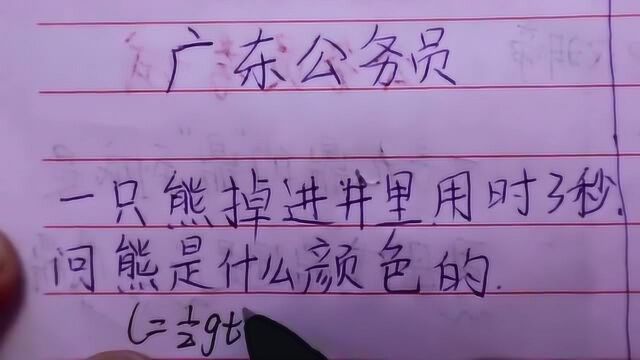 广东公务员
一只熊掉进井里用时3秒.
问熊是什么颜色的.
l=½gt